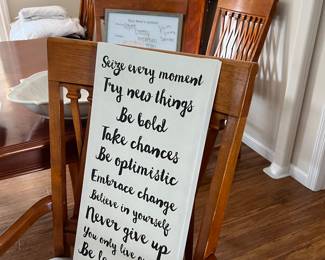 Seize every moment
Try new things
Be bold
Take chances
Be optimistic
Embrace change
Believe in yourself
Never give up
You only live
Be